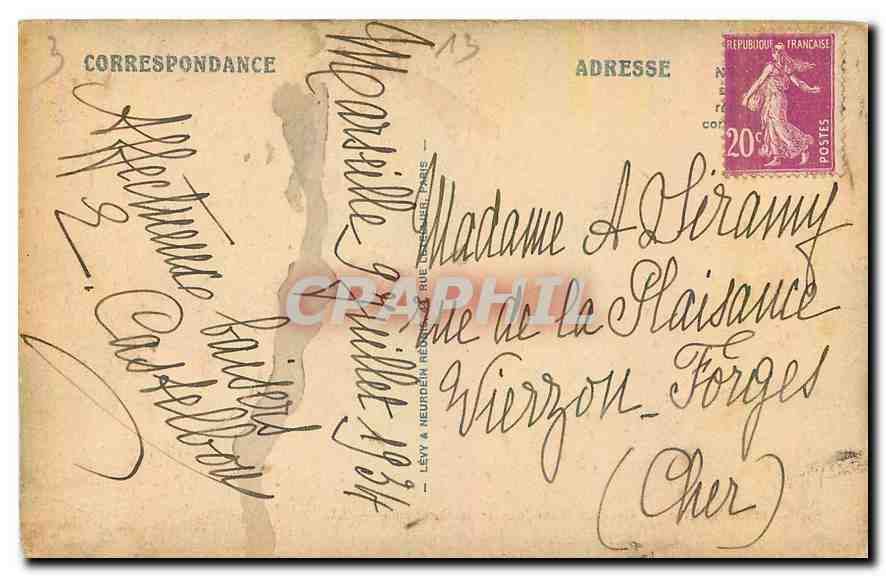 3
13
CORRESPONDANCE
ADRESSE
REPUBLIQUE FRANÇAISE
20c
POSTES
Marseille 9 Juillet 1934
Affectueux baisers
Castelbou
Madame A
Rue de la Plaisance
Vierzon-Forges
(Cher)
— LÉVY & NEURDEIN RÉUNIS, 44 RUE LETELLIER, PARIS —
CRAPHIL